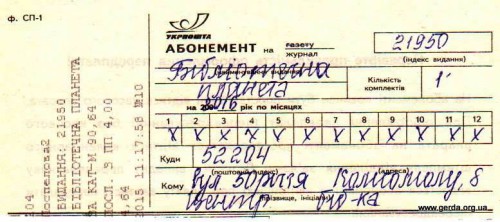 ф. СП-1
УКРПОШТА
АБОНЕМЕНТ на газету
журнал
21950
(індекс видання)
Бібліотечна
планета
(найменування видання)
Кількість
комплектів
1
на 2016 рік по місяцях
1 2 3 4 5 6 7 8 9 10 11 12
X X X X X X X X X X X X
Куди 52204
(поштовий індекс) (адреса)
Кому вул. 50річчя Комсомолу, 8
Центр біб-ка
(прізвище, ініціали)
Поспелова2
ВИДАННЯ: 21950
БІБЛІОТЕЧНА ПЛАНЕТА
ЗА КАТ-М 90,64
ПОСЛ. З ПП 4,00
4,64
2015 11:17:58 №10
www.gerda.org.ua